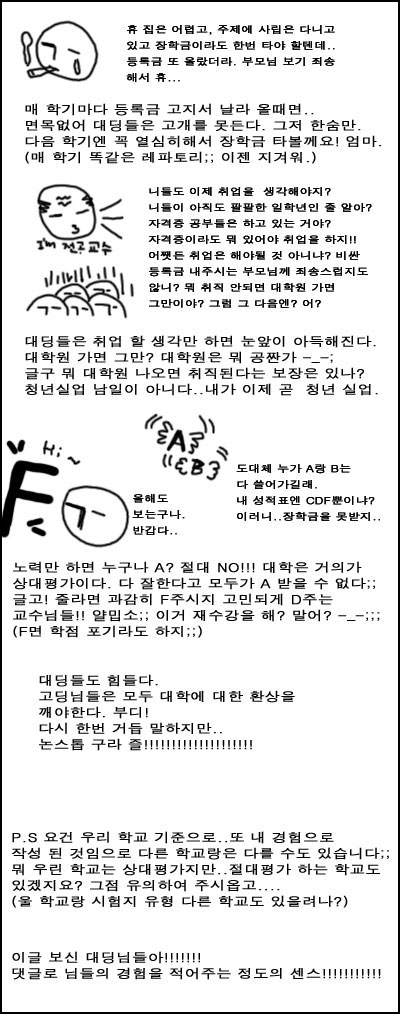 휴 집은 어렵고, 주제에 사립은 다니고
있고 장학금이라도 한번 타야 할텐데..
등록금 또 올랐더라. 부모님 보기 죄송
해서 휴...
매 학기마다 등록금 고지서 날라 올때면..
면목없어 대딩들은 고개를 못든다. 그저 한숨만.
다음 학기엔 꼭 열심히해서 장학금 타볼께요! 엄마.
(매 학기 똑같은 레파토리;; 이젠 지겨워.)
니들도 이제 취업을 생각해야지?
니들이 아직도 팔팔한 일학년인 줄 알아?
자격증 공부들은 하고 있는 거야?
자격증이라도 뭐 있어야 취업을 하지!!
어쨋든 취업은 해야될 것 아니냐? 비싼
등록금 내주시는 부모님께 죄송스럽지도
않니? 뭐 취직 안되면 대학원 가면
그만이야? 그럼 그 다음엔? 어?
I'm 전구교수
대딩들은 취업 할 생각만 하면 눈앞이 아득해진다.
대학원 가면 그만? 대학원은 뭐 공짠가 -_-;
글구 뭐 대학원 나오면 취직된다는 보장은 있나?
청년실업 남일이 아니다..내가 이제 곧 청년 실업.
Hi~
F
A
B
올해도
보는구나.
반갑다..
도대체 누가 A랑 B는
다 쓸어가길래.
내 성적표엔 CDF뿐이냐?
이러니..장학금을 못받지..
노력만 하면 누구나 A? 절대 NO!!! 대학은 거의가
상대평가이다. 다 잘한다고 모두가 A 받을 수 없다;;
글고! 줄라면 과감히 F주시지 고민되게 D주는
교수님들!! 얄밉소;; 이거 재수강을 해? 말어? -_-;;;
(F면 학점 포기라도 하지;;)
대딩들도 힘들다.
고딩님들은 모두 대학에 대한 환상을
깨야한다. 부디!
다시 한번 거듭 말하지만..
논스톱 구라 즐!!!!!!!!!!!!!!!!!!!!
P.S 요건 우리 학교 기준으로..또 내 경험으로
작성 된 것임으로 다른 학교랑은 다를 수도 있습니다;;
뭐 우린 학교는 상대평가지만..절대평가 하는 학교도
있겠지요? 그점 유의하여 주시옵고....
(울 학교랑 시험지 유형 다른 학교도 있을려나?)
이글 보신 대딩님들아!!!!!!!
댓글로 님들의 경험을 적어주는 정도의 센스!!!!!!!!!!!